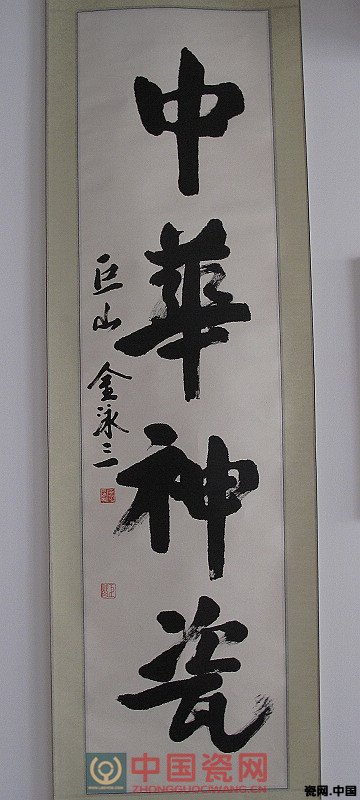 中華神瓷
巨山 金泳三
中国瓷网
ZHONGGUOCIWANG.CN
瓷网.中国